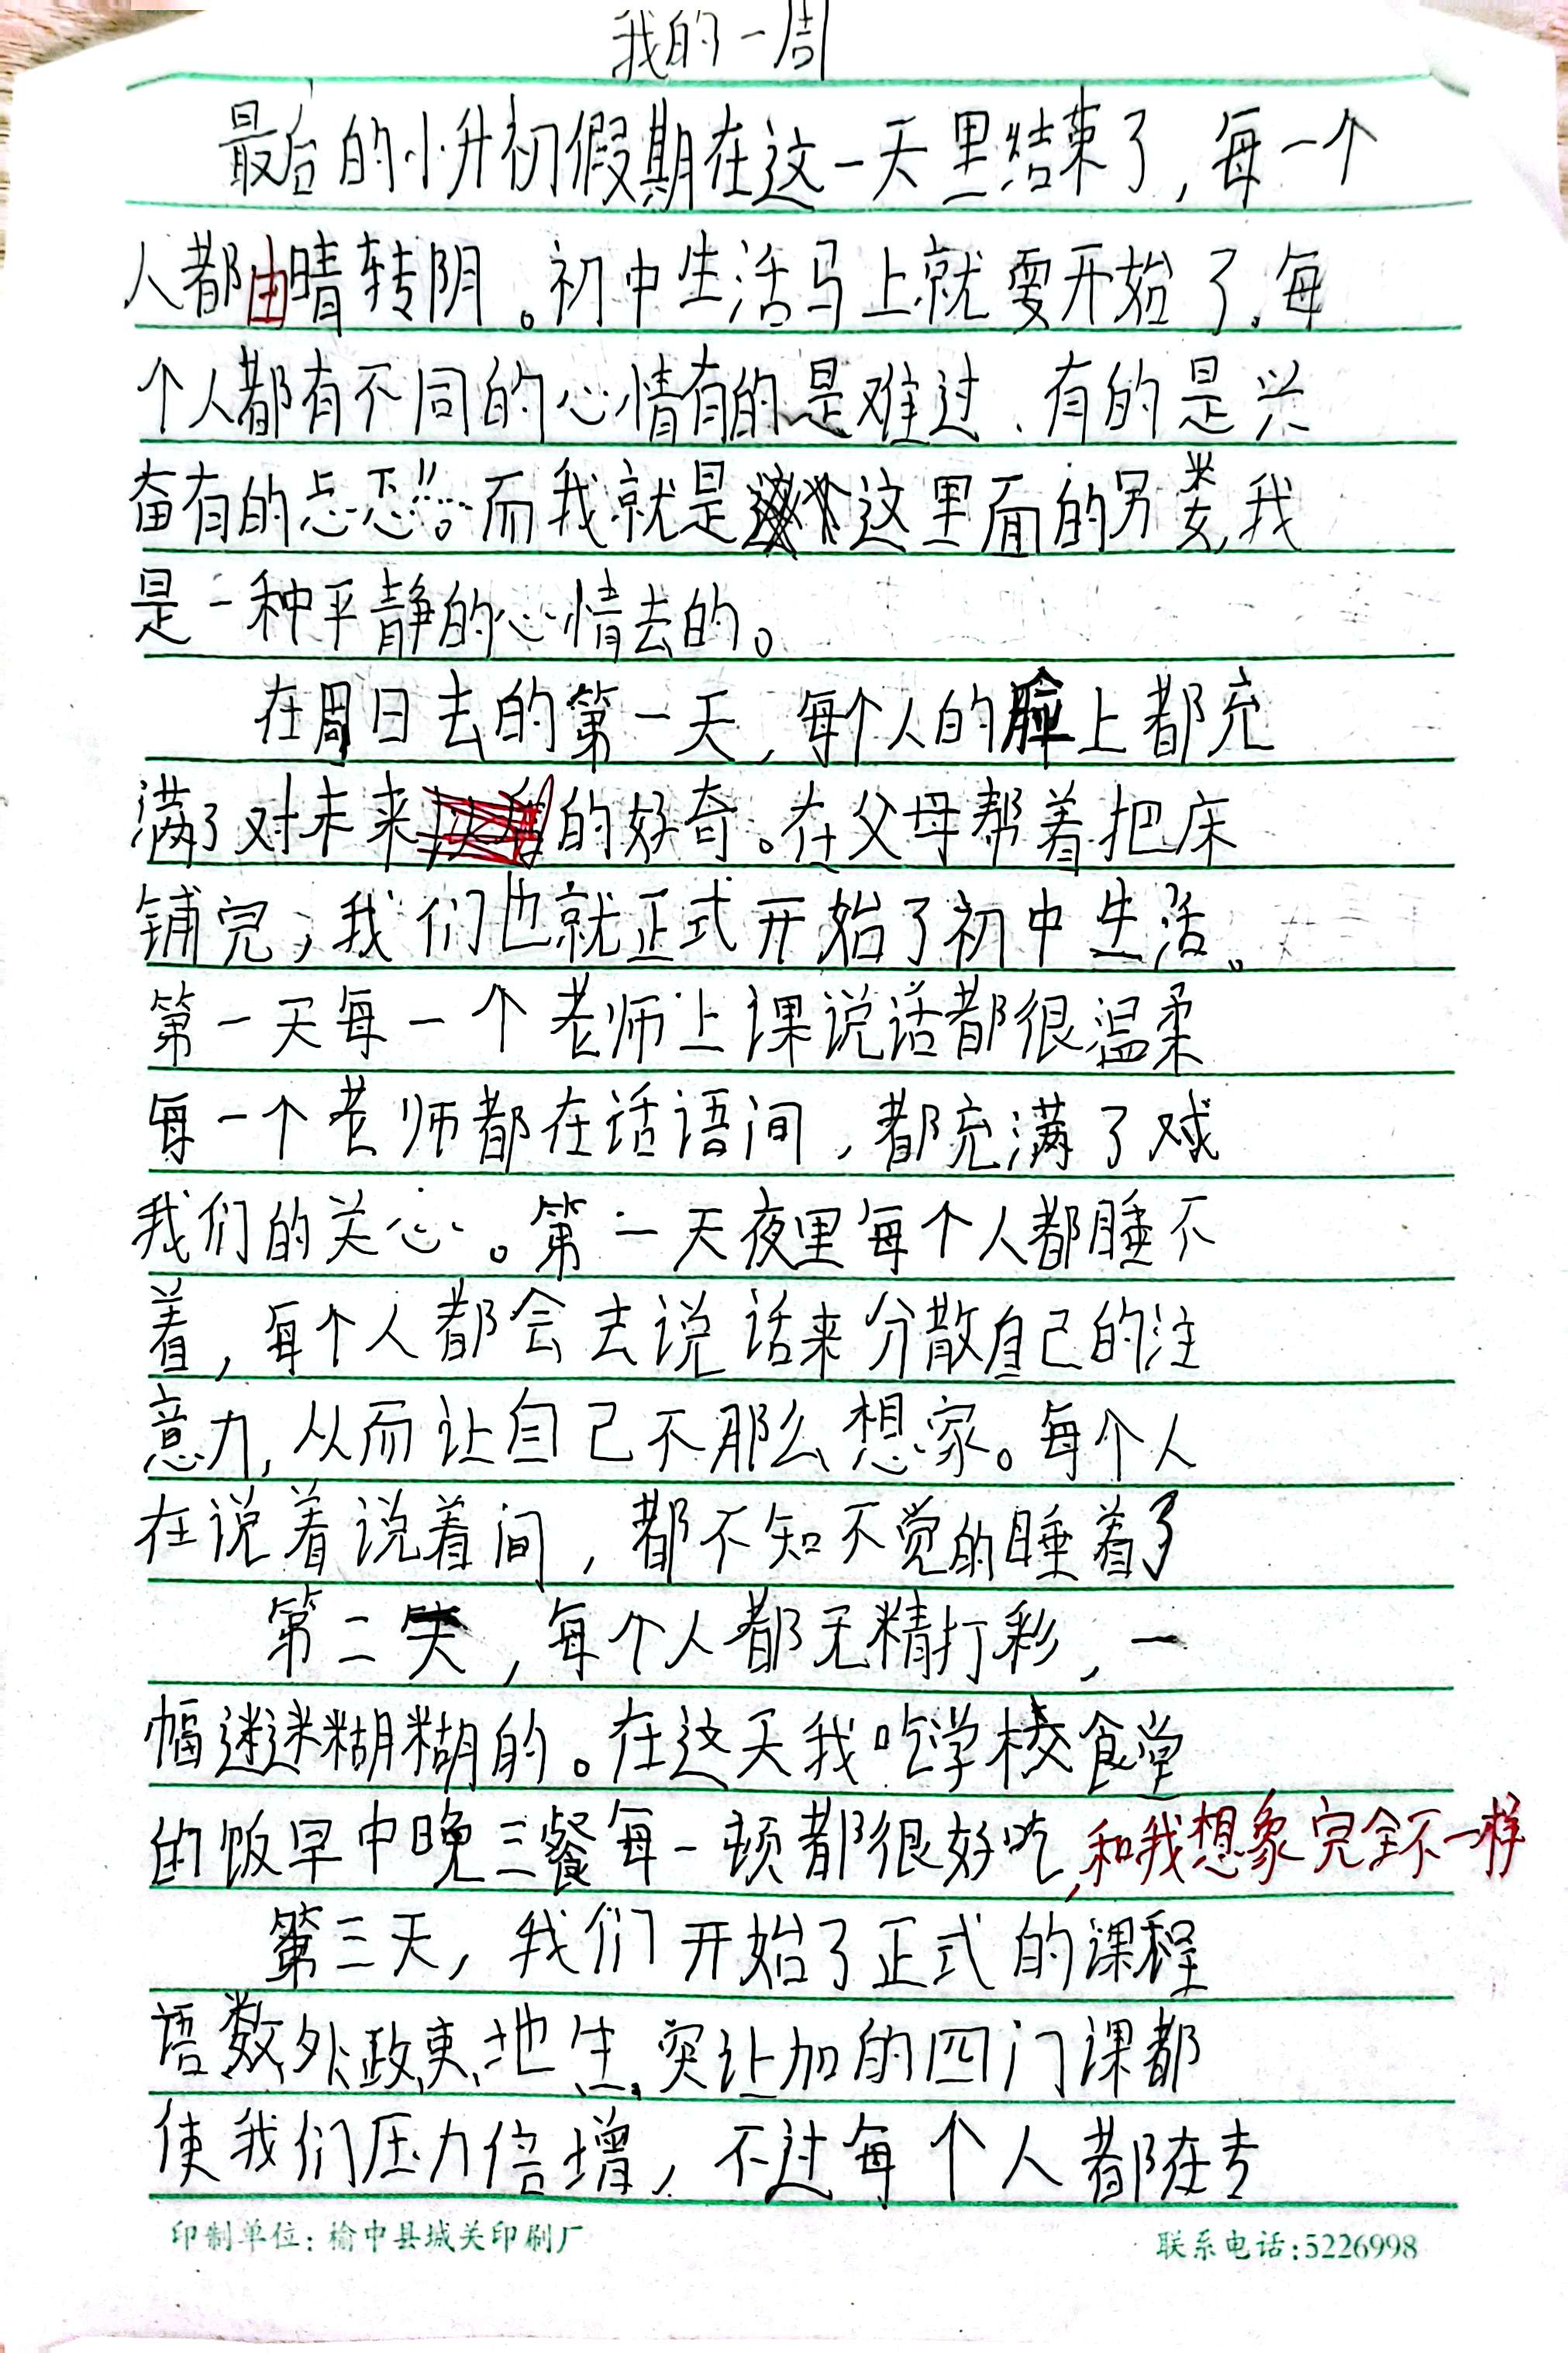 我的一周
最后的小升初假期在这一天里结束了,每一个
人都由晴转阴。初中生活马上就要开始了,每
个人都有不同的心情有的是难过、有的是兴
奋有的忐忑……而我就是这里面的另类,我
是一种平静的心情去的。
在周日去的第一天,每个人的脸上都充
满了对未来的好奇。在父母帮着把床
铺完,我们也就正式开始了初中生活。
第一天每一个老师上课说话都很温柔
每一个老师都在话语间,都充满了对
我们的关心。第一天夜里每个人都睡不
着,每个人都会去说话来分散自己的注
意力,从而让自己不那么想家。每个人
在说着说着间,都不知不觉的睡着了
第二天,每个人都无精打彩,一
幅迷迷糊糊的。在这天我吃学校食堂
的饭早中晚三餐每一顿都很好吃,和我想象完全不一样
第三天,我们开始了正式的课程
语、数、外、政、史、地、生,突让加的四门课都
使我们压力倍增,不过每个人都在专
印制单位:榆中县城关印刷厂 联系电话:5226998